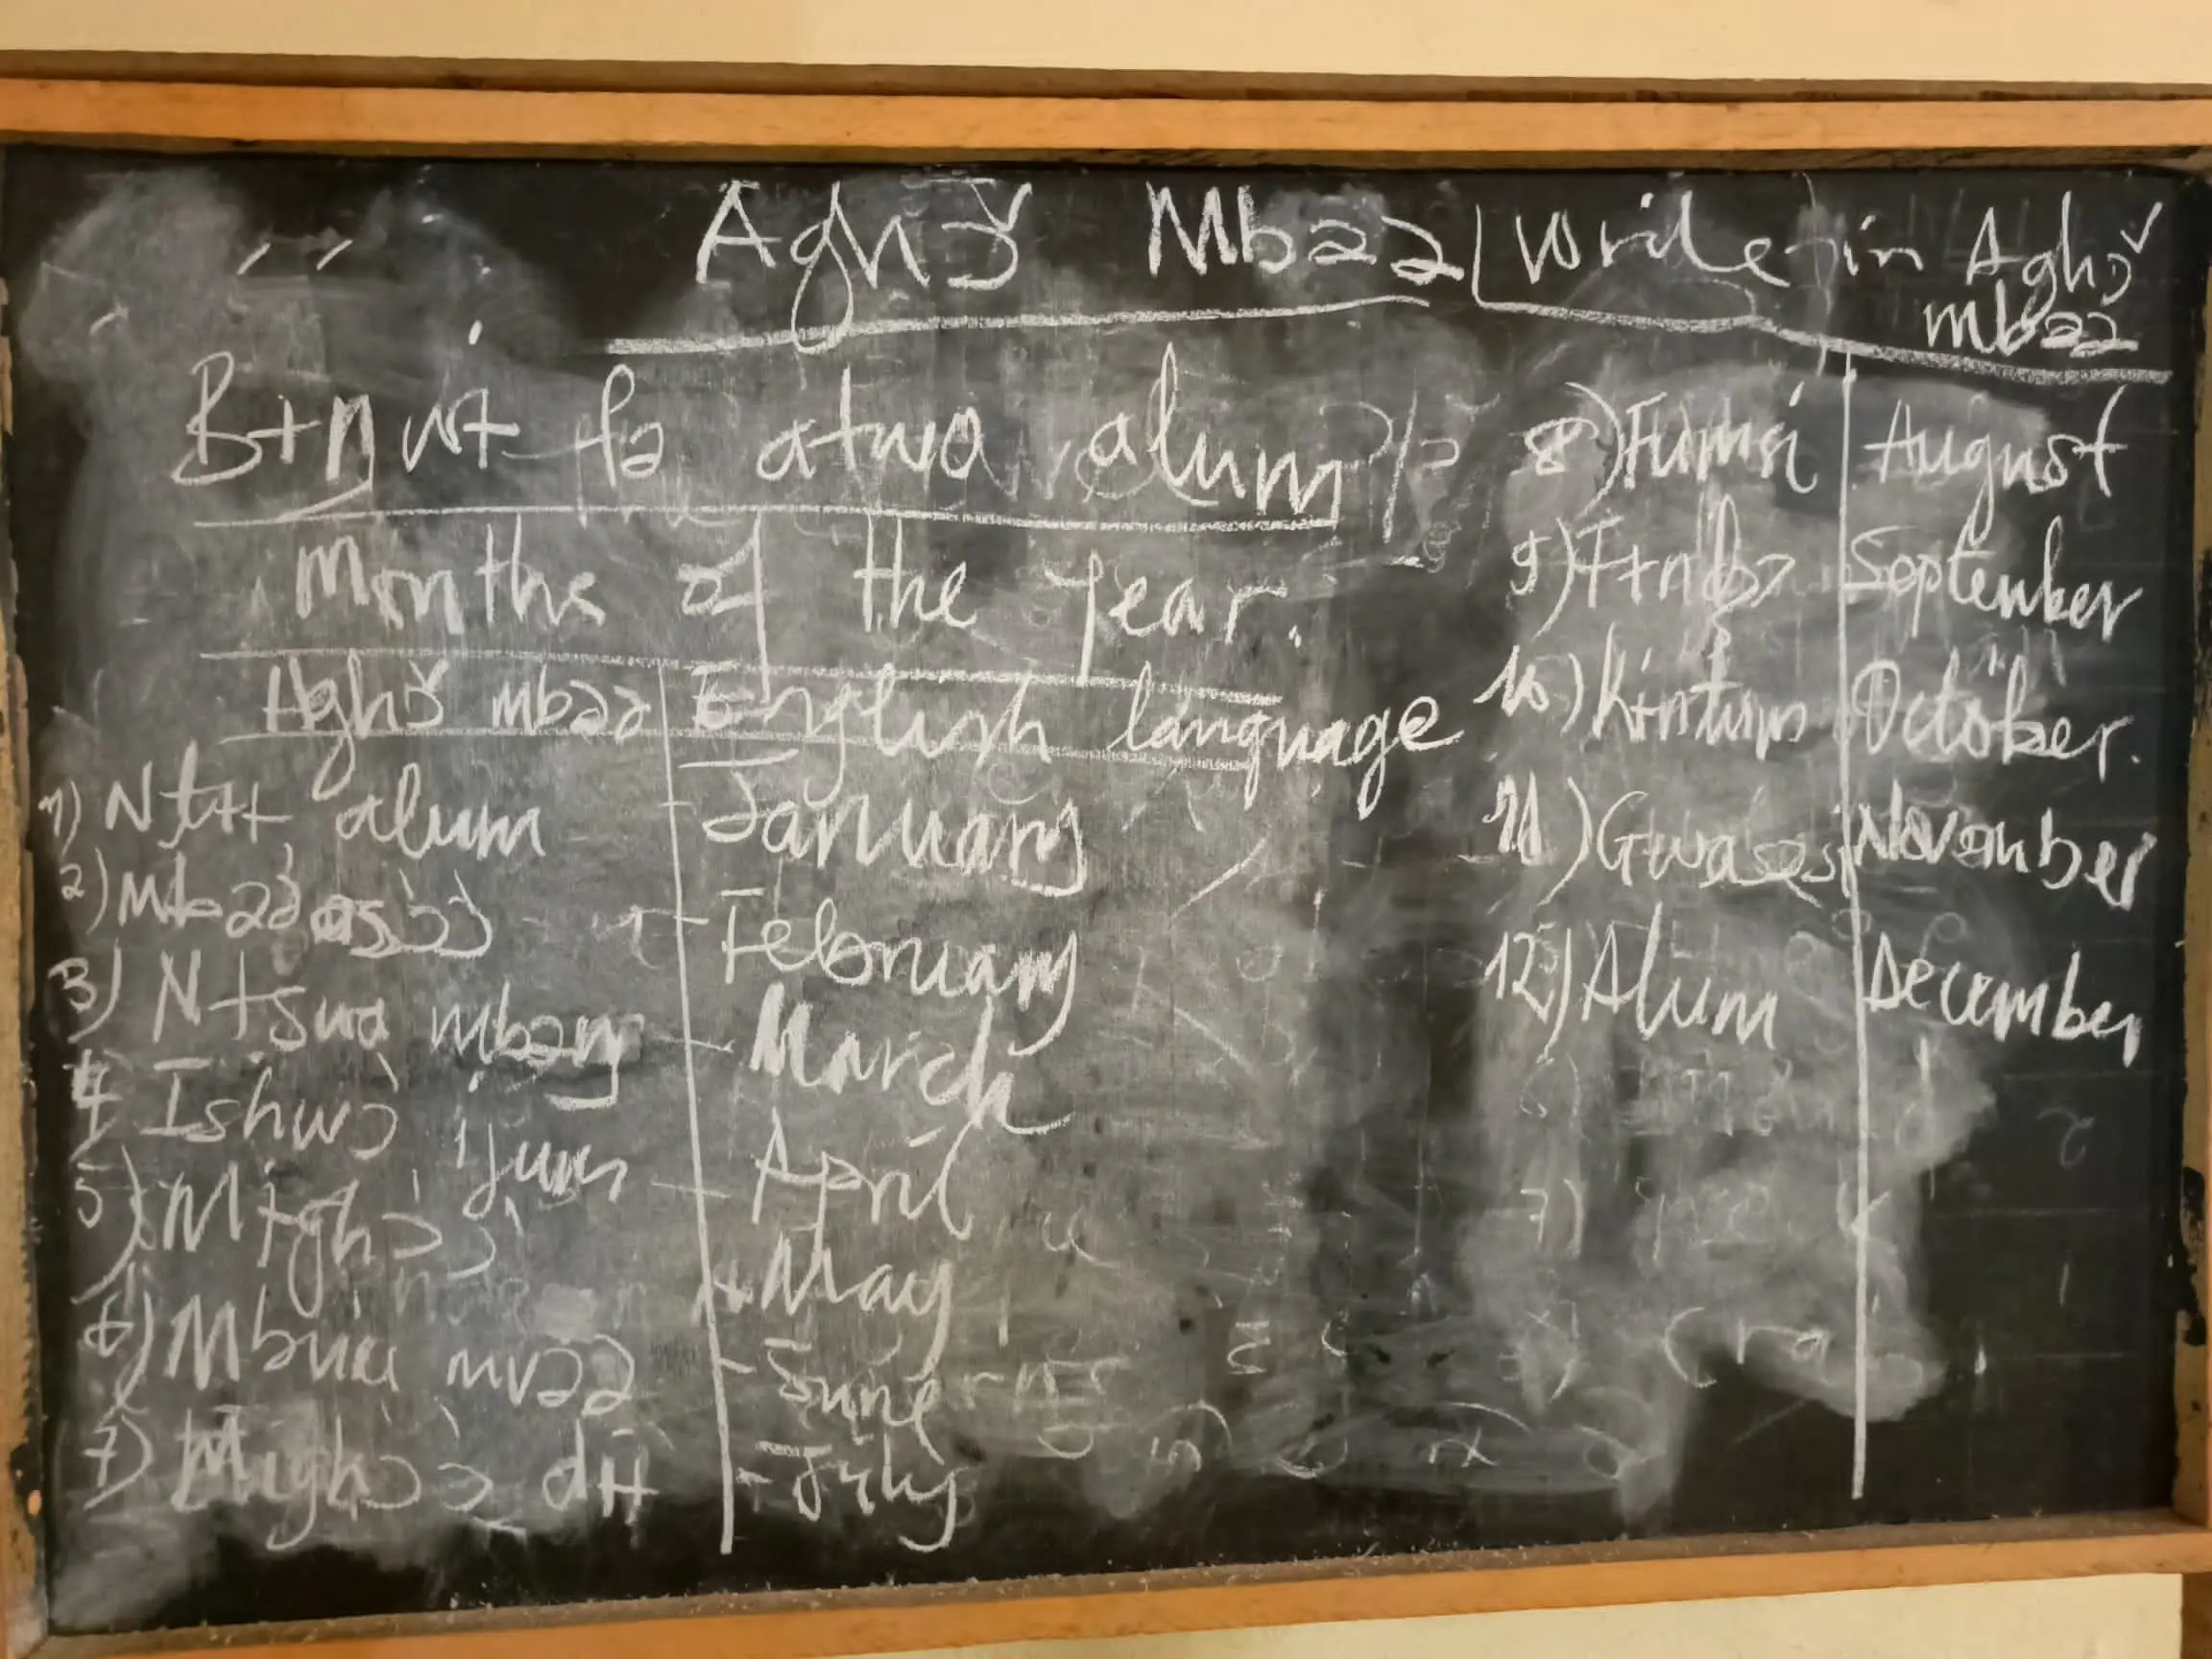 Aghɔ̌ Mbəə | Write in Aghɔ̌ mbəə
Bɨŋwɨ fə atwa alum
Months of the year.
Aghɔ̌ mbəə English language
1) Ntɨɨ alum - January
2) Mbəəəsɔ̀ɔ̀ - February
3) Ntswa mbəŋ - March
4 Ishwɔ̀ ijuŋ - April
5) Mɨghɔ̀ɔ̀ - May
6) mvəə - June
7) Mɨghɔ̀ɔ̀ dɨɨ - July
8) Fumsi August
9) September
10) Kɨntuŋ October.
11) November
12) Alum December